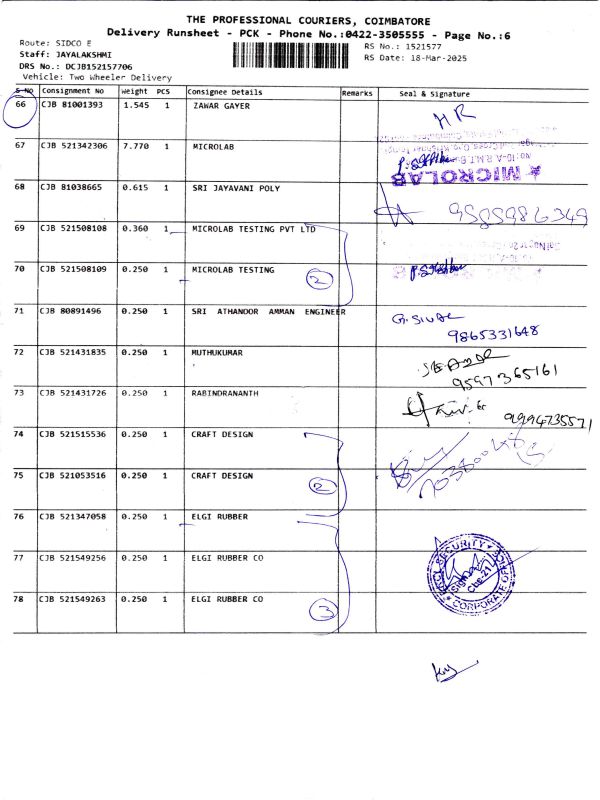 THE PROFESSIONAL COURIERS, COIMBATORE
Delivery Runsheet - PCK - Phone No.:0422-3505555 - Page No.:6
Route: SIDCO E
RS No.: 1521577
Staff: JAYALAKSHMI
RS Date: 18-Mar-2025
DRS No.: DCJB152157706
Vehicle: Two Wheeler Delivery
S No Consignment No Weight PCS Consignee Details Remarks Seal & Signature
66 CJB 81001393 1.545 1 ZAWAR GAYER
HR
67 CJB 521342306 7.770 1 MICROLAB
★ MICROLAB
68 CJB 81038665 0.615 1 SRI JAYAVANI POLY
9585986349
69 CJB 521508108 0.360 1 MICROLAB TESTING PVT LTD
70 CJB 521508109 0.250 1 MICROLAB TESTING
2
71 CJB 80891496 0.250 1 SRI ATHANDOOR AMMAN ENGINEER
9865331648
72 CJB 521431835 0.250 1 MUTHUKUMAR
9597365161
73 CJB 521431726 0.250 1 RABINDRANANTH
9994735571
74 CJB 521515536 0.250 1 CRAFT DESIGN
75 CJB 521053516 0.250 1 CRAFT DESIGN
2
76 CJB 521347058 0.250 1 ELGI RUBBER
77 CJB 521549256 0.250 1 ELGI RUBBER CO
SECURITY
CORPORATE
78 CJB 521549263 0.250 1 ELGI RUBBER CO
3